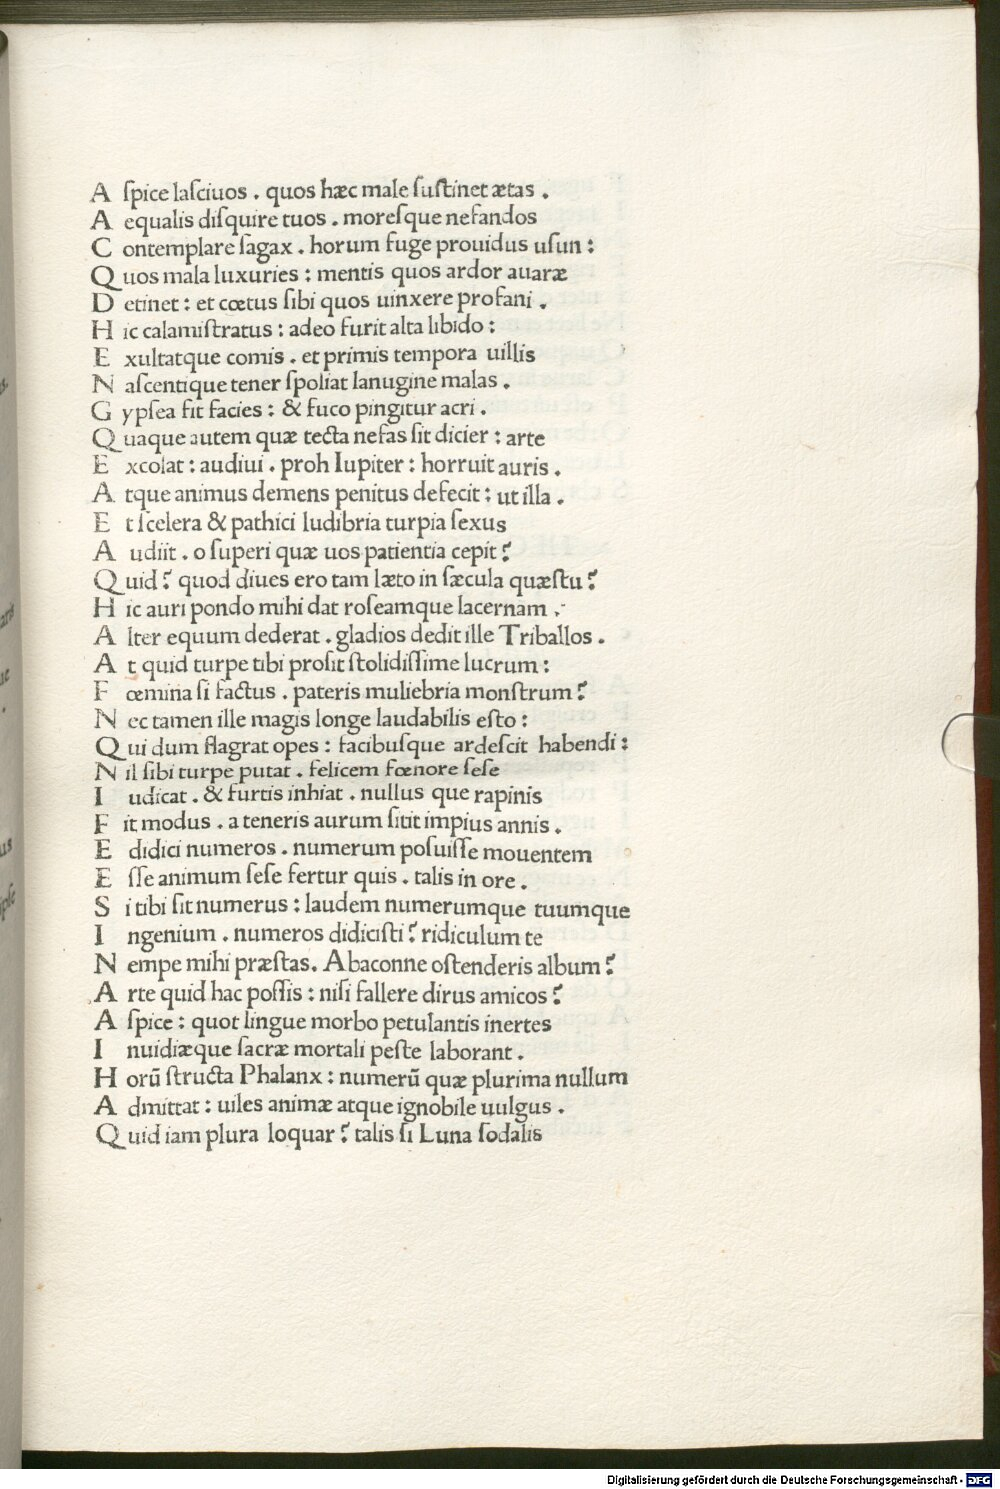 A ſpice laſciuos . quos hæc male ſuſtinet ætas .
A equalis diſquire tuos . moreſque nefandos
C ontemplare ſagax . horum fuge prouidus uſun :
Q uos mala luxuries : mentis quos ardor auaræ
D etinet : et cœtus ſibi quos uinxere profani .
H ic calamiſtratus : adeo furit alta libido :
E xultatque comis . et primis tempora uillis
N aſcentique tener ſpoliat lanugine malas .
G ypſea fit facies : & fuco pingitur acri .
Q uaque autem quæ tecta nefas ſit dicier : arte
E xcolat : audiui . proh Iupiter : horruit auris .
A tque animus demens penitus defecit : ut illa .
E t ſcelera & pathici ludibria turpia ſexus
A udiit . o ſuperi quæ uos patientia cepit ?
Q uid ? quod diues ero tam læto in ſæcula quæſtu ?
H ic auri pondo mihi dat roſeamque lacernam .
A lter equum dederat . gladios dedit ille Triballos .
A t quid turpe tibi proſit ſtolidiſſime lucrum :
F œmina ſi factus . pateris muliebria monſtrum ?
N ec tamen ille magis longe laudabilis eſto :
Q ui dum flagrat opes : facibuſque ardeſcit habendi :
N il ſibi turpe putat . felicem fœnore ſeſe
I udicat . & furtis inhiat . nullus que rapinis
F it modus . a teneris aurum ſitit impius annis .
E didici numeros . numerum poſuiſſe mouentem
E ſſe animum ſeſe fertur quis . talis in ore .
S i tibi ſit numerus : laudem numerumque tuumque
I ngenium . numeros didiciſti ? ridiculum te
N empe mihi præſtas. Abaconne oſtenderis album ?
A rte quid hac poſſis : niſi fallere dirus amicos ?
A ſpice : quot lingue morbo petulantis inertes
I nuidiæque ſacræ mortali peſte laborant .
H orū ſtructa Phalanx : numerū quæ plurima nullum
A dmittat : uiles animæ atque ignobile uulgus .
Q uid iam plura loquar ? talis ſi Luna ſodalis
Digitalisierung gefördert durch die Deutsche Forschungsgemeinschaft - DFG